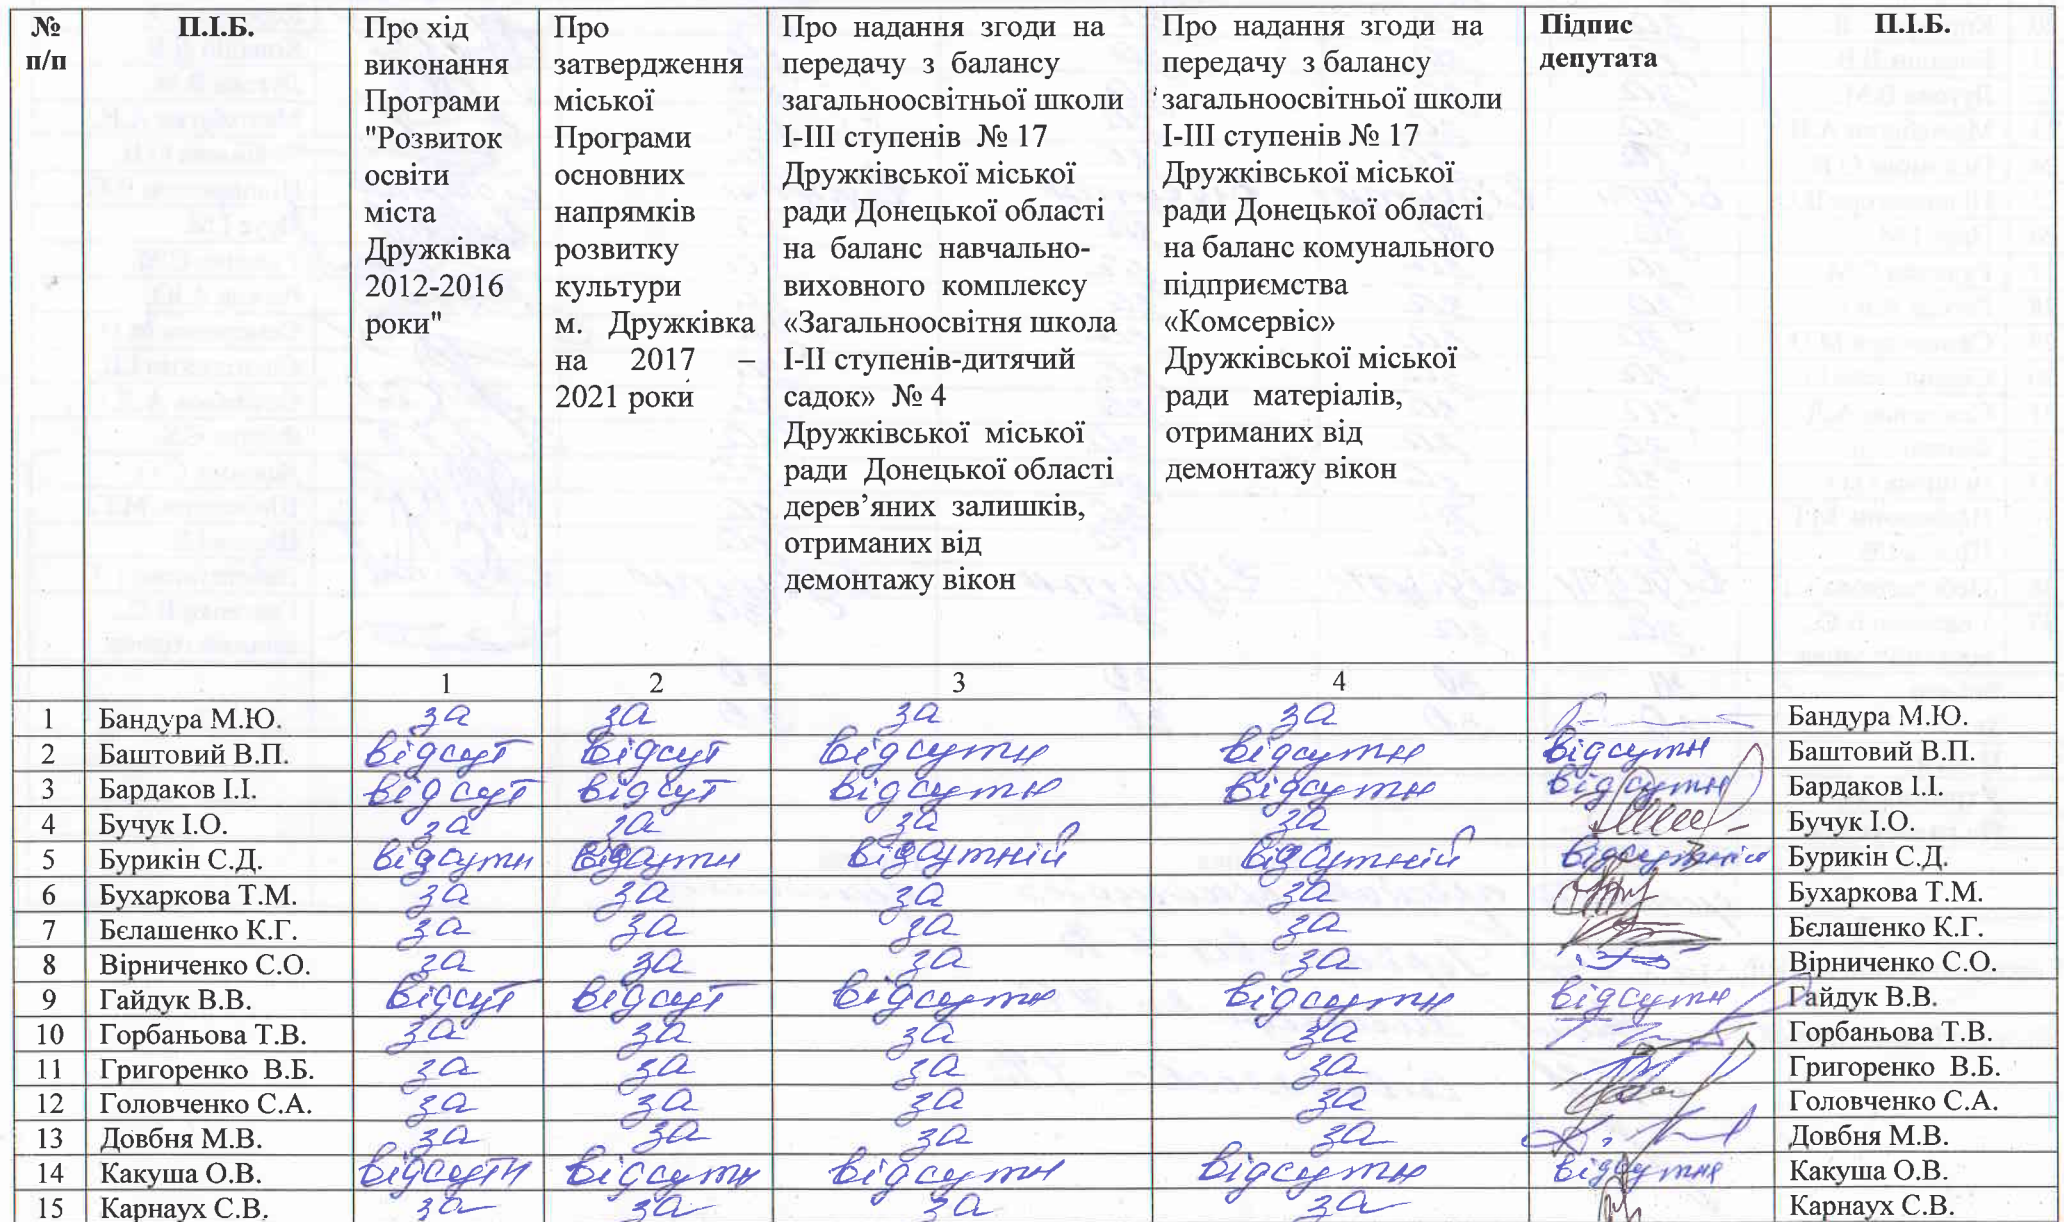 № п/п
П.І.Б.
Про хід
виконання
Програми
"Розвиток
освіти
міста
Дружківка
2012-2016
роки"
Про
затвердження
міської
Програми
основних
напрямків
розвитку
культури
м. Дружківка
на 2017 –
2021 роки
Про надання згоди на
передачу з балансу
загальноосвітньої школи
І-ІІІ ступенів № 17
Дружківської міської
ради Донецької області
на баланс навчально-
виховного комплексу
«Загальноосвітня школа
І-ІІ ступенів-дитячий
садок» № 4
Дружківської міської
ради Донецької області
дерев’яних залишків,
отриманих від
демонтажу вікон
Про надання згоди на
передачу з балансу
загальноосвітньої школи
І-ІІІ ступенів № 17
Дружківської міської
ради Донецької області
на баланс комунального
підприємства
«Комсервіс»
Дружківської міської
ради матеріалів,
отриманих від
демонтажу вікон
Підпис
депутата
П.І.Б.
1 2 3 4
1 Бандура М.Ю. за за за за Бандура М.Ю.
2 Баштовий В.П. відсут відсут відсутн відсутн відсутн Баштовий В.П.
3 Бардаков І.І. відсут відсут відсутн відсутн відсутн Бардаков І.І.
4 Бучук І.О. за за за за Бучук І.О.
5 Бурикін С.Д. відсутн відсутн відсутній відсутній відсутній Бурикін С.Д.
6 Бухаркова Т.М. за за за за Бухаркова Т.М.
7 Бєлашенко К.Г. за за за за Бєлашенко К.Г.
8 Вірниченко С.О. за за за за Вірниченко С.О.
9 Гайдук В.В. відсут відсут відсутн відсутн відсутн Гайдук В.В.
10 Горбаньова Т.В. за за за за Горбаньова Т.В.
11 Григоренко В.Б. за за за за Григоренко В.Б.
12 Головченко С.А. за за за за Головченко С.А.
13 Довбня М.В. за за за за Довбня М.В.
14 Какуша О.В. відсутн відсутн відсутн відсутн відсутня Какуша О.В.
15 Карнаух С.В. за за за за Карнаух С.В.